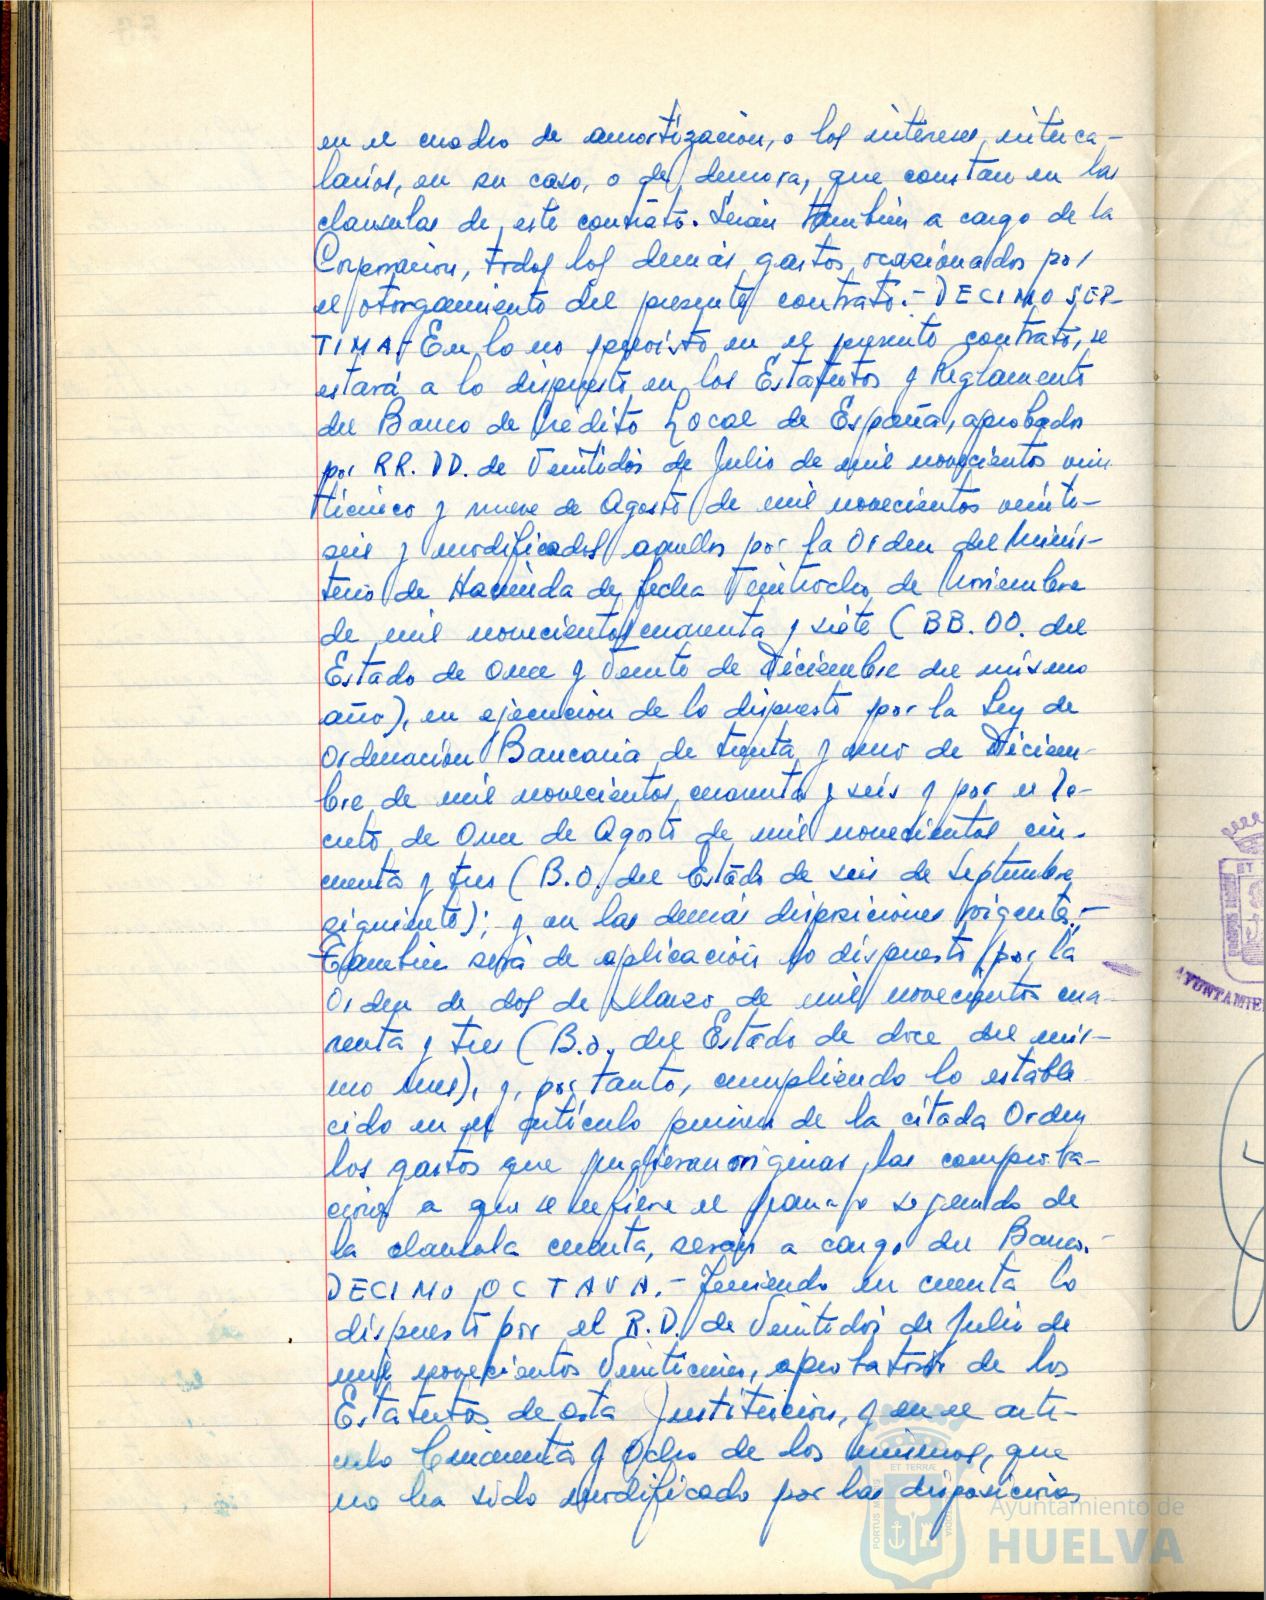 en el cuadro de amortización, o los intereses interca-
larios, en su caso, o de demora, que constan en las
clausulas de este contrato. Serán también a cargo de la
Corporación, todos los demás gastos ocasionados por
el otorgamiento del presente contrato.- DECIMO SEP-
TIMA.- En lo no previsto en el presente contrato, se
estará a lo dispuesto en los Estatutos y Reglamento
del Banco de Crédito Local de España, aprobados
por RR. DD. de Veintidós de Julio de mil novecientos vein
ticinco y nueve de Agosto de mil novecientos veinti-
seis y modificados aquellos por la Orden del Minis-
terio de Hacienda de fecha Veintiocho de Noviembre
de mil novecientos cuarenta y siete (BB.OO. del
Estado de Once y Veinte de Diciembre del mismo
año), en ejecución de lo dispuesto por la Ley de
Ordenación Bancaria de treinta y uno de Diciem-
bre de mil novecientos cuarenta y seis y por el De-
creto de Once de Agosto de mil novecientos cin-
cuenta y tres (B.O. del Estado de seis de Septiembre
siguiente); y en las demás disposiciones vigentes.-
También será de aplicación lo dispuesto por la
Orden de dos de Marzo de mil novecientos cua-
renta y tres (B.O. del Estado de doce del mis-
mo mes), y, por tanto, cumpliendo lo estable
cido en el artículo primero de la citada Orden
los gastos que pudieran originar las comproba-
ciones a que se refiere el parrafo segundo de
la clausula cuarta, serán a cargo del Banco.-
DECIMO OCTAVA.- Teniendo en cuenta lo
dispuesto por el R.D. de Veintidós de Julio de
mil novecientos Veinticinco, aprobatorio de los
Estatutos de esta Institución, y en el artí-
culo Cincuenta y Ocho de los mismos, que
no ha sido modificado por las disposiciones
AYUNTAMIE
ET TERRÆ
PORTUS MARIS
Ayuntamiento de
HUELVA